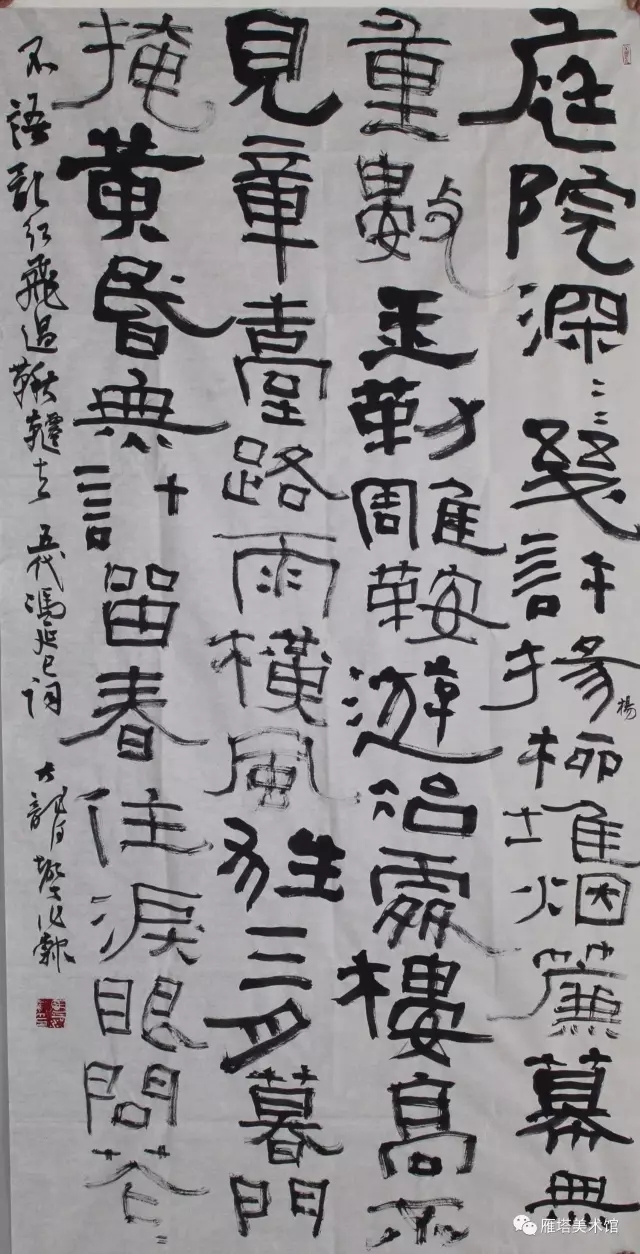 庭院深〻〻幾許揚柳堆烟簾幕無
楊
重數玉勒雕鞍遊冶處樓高不
見章臺路雨橫風狂三月暮門
掩黄昏無計留春住淚眼問花〻
不語亂紅飛過鞦韆去 五代馮延巳词
雁塔美术馆